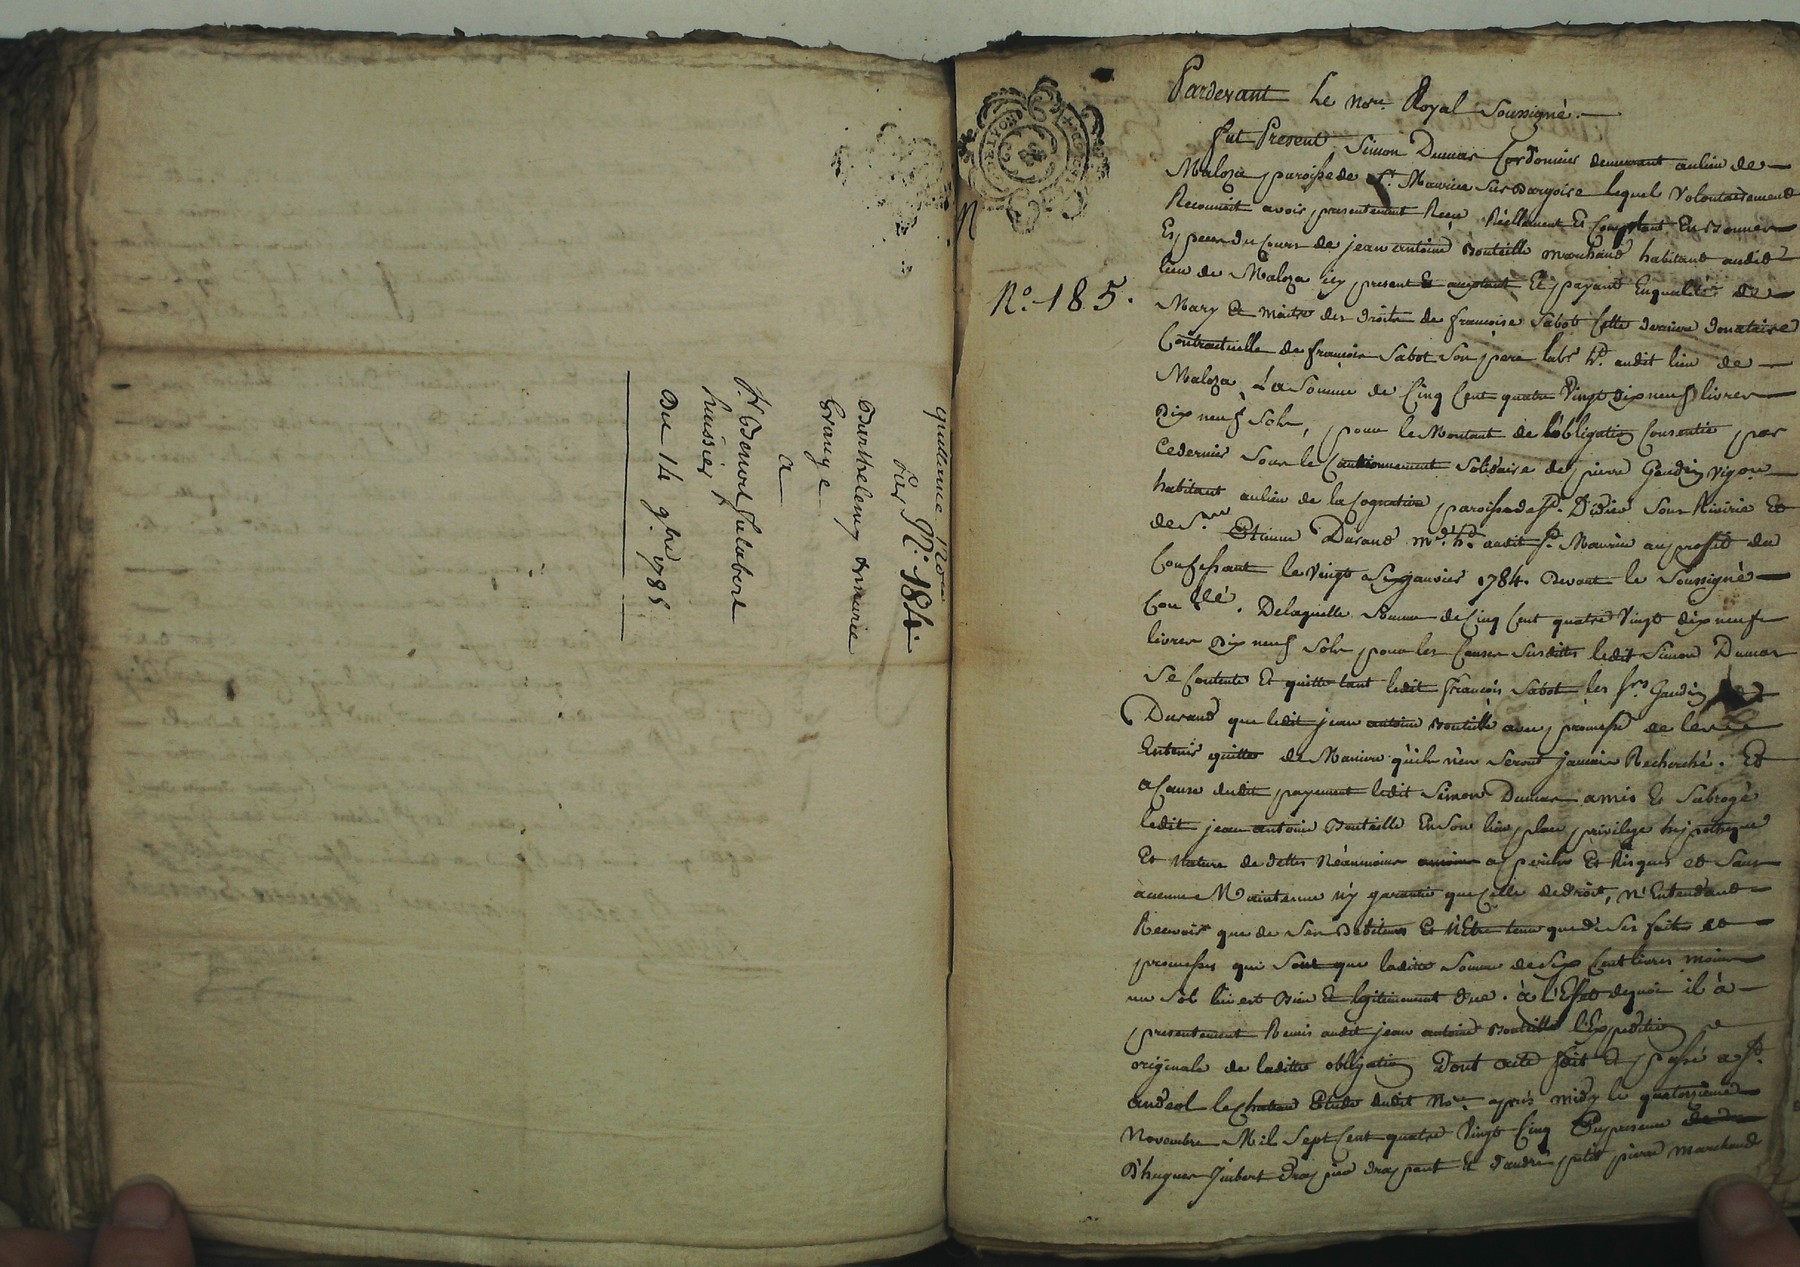 quittance No
N.º 184.
Barthelemy
Grange
a
huissier
Du 14 9.bre 1785
N.º 185.
Pardevant Le No.re Royal Soussigné.
fut Present Simon Dumas Cordonnier demeurant au lieu de
Maloza paroisse de S.t Maurice sur Dargoire lequel Volontairement
Reconnoit avoir presentement Receu Reellement Et Comptant En Bonnes
Especes du Cours de jean antoine Bouteille marchand habitant audit
lieu de Maloza icy present Et acceptant Et payant En qualité de
Mary Et maitre des droits de francoise Sabot Cette derniere donataire
Contractuelle de francois Sabot Son pere lab.r h.t audit lieu de
Maloza, La Somme de Cinq Cent quatre Vingt dix neuf livres
Dix neuf Sols, pour le Montant de l'obligation Consentie par
Ce dernier Sous le Cautionnement Solidaire de pierre Gaudin vigon
habitant au lieu de la Cognatiere paroisse de S.t Didier Sous Riviere Et
de S.r Etienne Durand m.d h.t audit S.t Maurice au profit du
Confessant le Vingt Six janvier 1784. Devant le Soussigné
Con.llé. De laquelle Somme de Cinq Cent quatre Vingt dix neuf
livres Dix neuf Sols pour les Causes Susdittes ledit Simon Dumas
Se Contente Et quitte tant ledit francois Sabot les S.rs Gaudin
Durand que ledit jean antoine Bouteille avec promesse de les
Entenir quittes de Maniere qu'ils n'en Seront jamais Recherché. Et
a Cause dudit payement ledit Simon Dumas a mis Et Subrogé
ledit jean antoine Bouteille En Son lieu, place, privilege hypotheque
Et Nature de dettes Néanmoins a perils Et Risques et Sans
aucune Maintenue n'y garantie que Celle de droit, N'Entendant
Recevoir que de Ses Debiteurs Et N'Etre tenu que de Ses faits et
promesses qui Sont que laditte Somme de Six Cent livres moins
un Sol lui est Bien Et legitimement due. à l'Effet de quoi il à
presentement Remis audit jean antoine Bouteille l'Expedition
originale de laditte obligation Dont acte fait Et passé a S.t
andeol le chateau Etude dudit No.re après midy le quatorzieme
Novembre Mil Sept Cent quatre Vingt Cinq En presence
D'hugues Jmbert drapier drapant Et d'andré petit pierre marchand